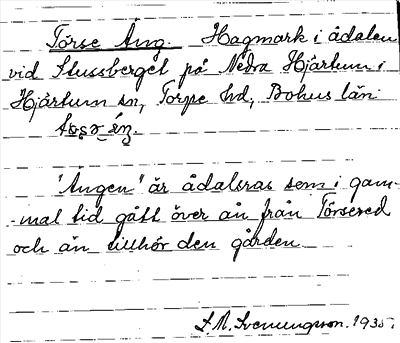 Törse Äng. Hagmark i ådalen
vid Slussberget på Nedra Hjärtum i
Hjärtum sn, Torpe hd, Bohus län
"Ängen" är ådalsras som i gam-
mal tid gått över ån från Törsered
och än tillhör den gården
S. A. Svenungsson. 1935.